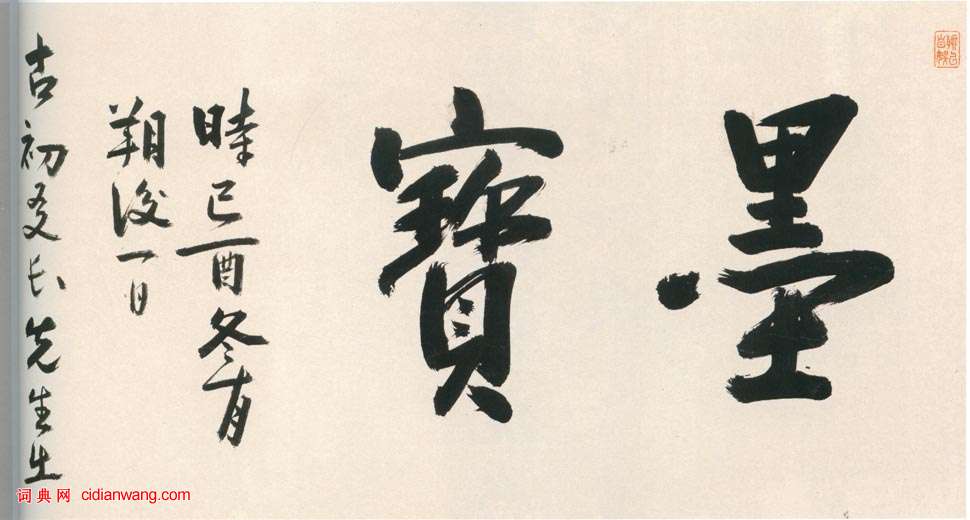 墨
寶
時己酉冬十月
朔後一日
古初長先生生
词典网 cidianwang.com